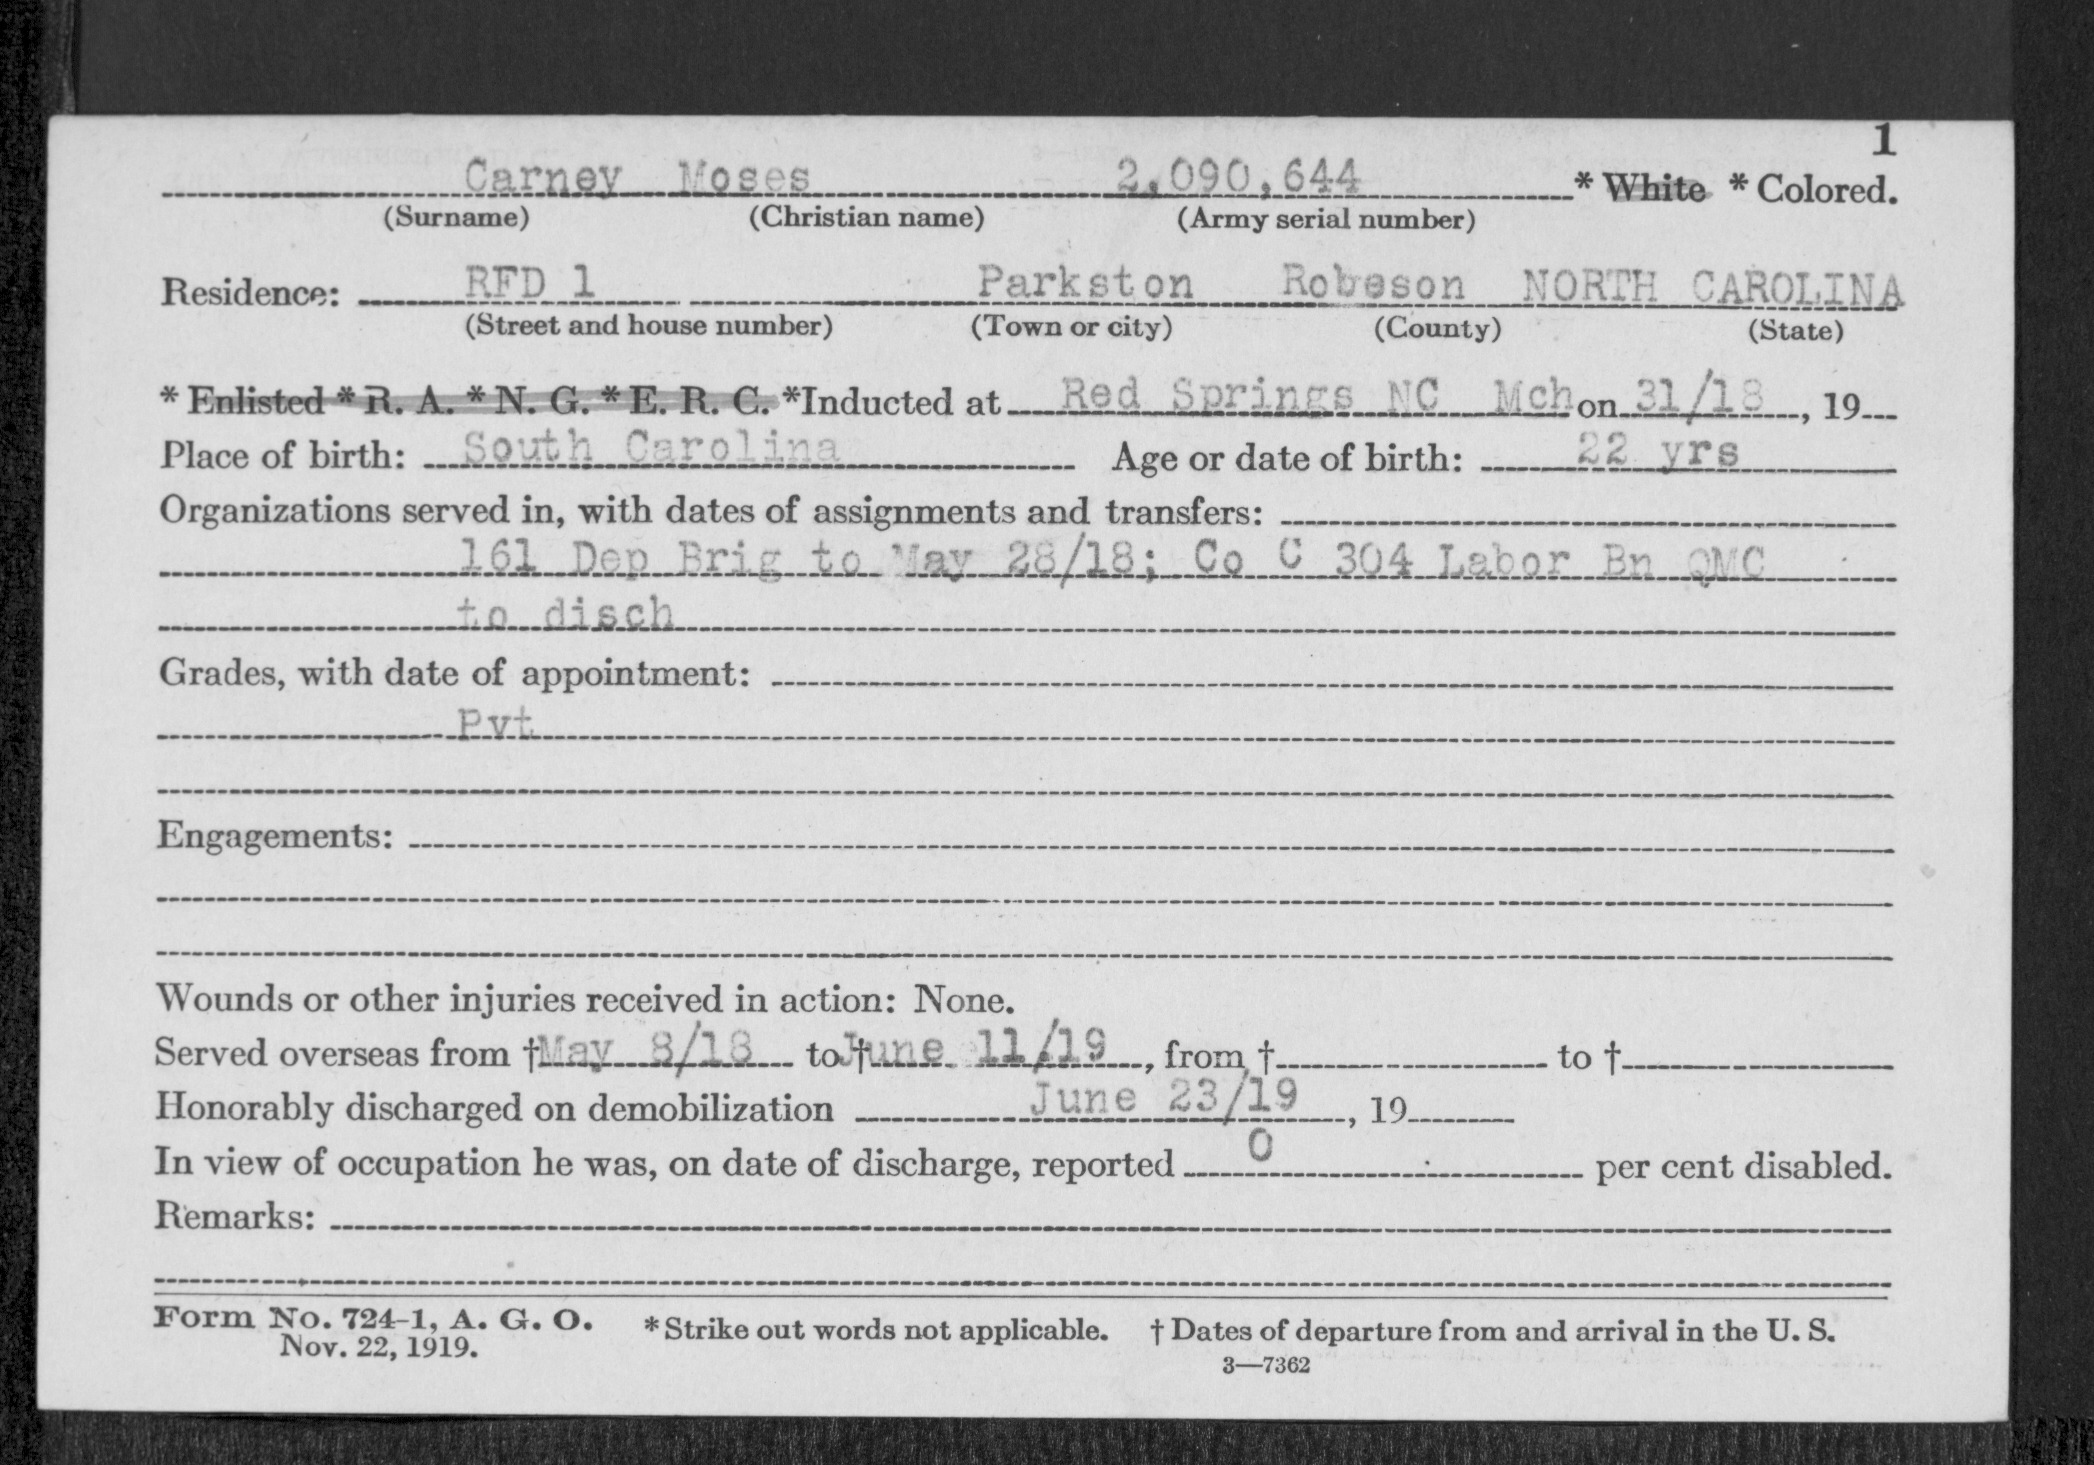 1
Carney Moses 2,090,644 * White * Colored.
(Surname) (Christian name) (Army serial number)
Residence: RFD 1 Parkston Robeson NORTH CAROLINA
(Street and house number) (Town or city) (County) (State)
* Enlisted * R. A. * N. G. * E. R. C. *Inducted at Red Springs NC Mch on 31/18, 19
Place of birth: South Carolina Age or date of birth: 22 yrs
Organizations served in, with dates of assignments and transfers:
161 Dep Brig to May 28/18; Co C 304 Labor Bn QMC
to disch
Grades, with date of appointment:
Pvt
Engagements:
Wounds or other injuries received in action: None.
Served overseas from †May 8/18 to †June 11/19, from † to †
Honorably discharged on demobilization June 23/19, 19
In view of occupation he was, on date of discharge, reported 0 per cent disabled.
Remarks:
Form No. 724-1, A. G. O. * Strike out words not applicable. † Dates of departure from and arrival in the U. S.
Nov. 22, 1919.
3—7362